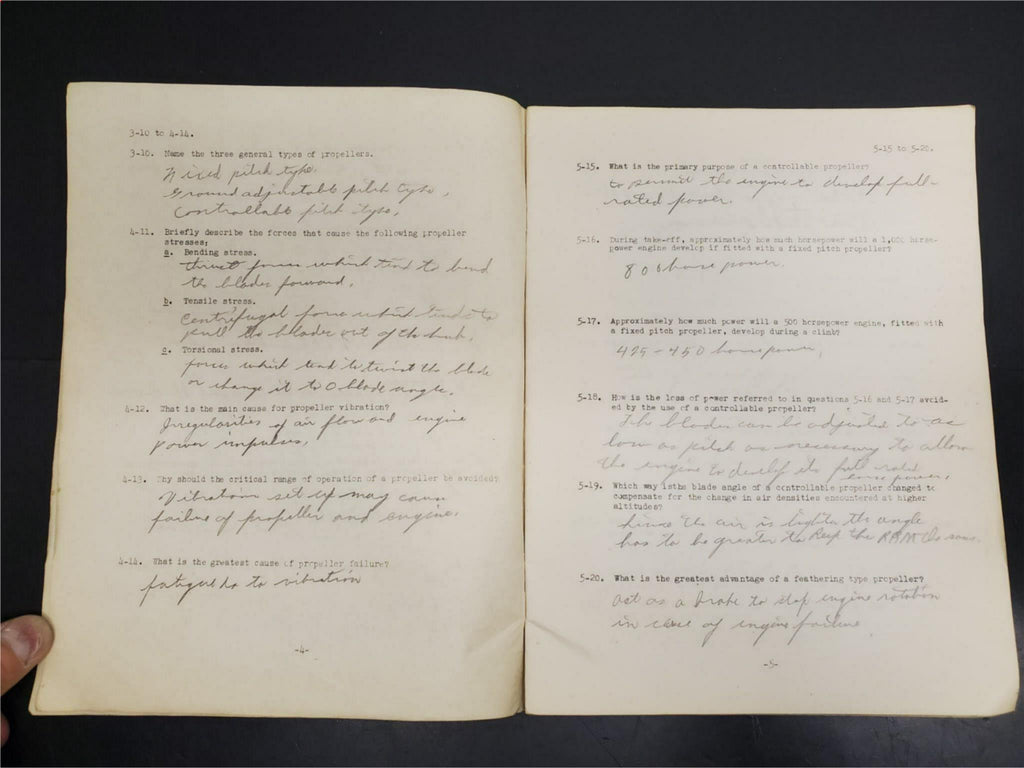 3-10 to 4-14.
3-10. Name the three general types of propellers.
Fixed pitch type.
Ground adjustable pitch type,
Controllable pitch type,
4-11. Briefly describe the forces that cause the following propeller
stresses;
a. Bending stress.
thrust forces which tend to bend
the blades forward,
b. Tensile stress.
Centrifugal force which tends to
pull the blades out of the hub.
c. Torsional stress.
forces which tend to twist the blade
or change it to 0 blade angle.
4-12. What is the main cause for propeller vibration?
Irregularities of air flow and engine
power impulses,
4-13. Why should the critical range of operation of a propeller be avoided?
Vibrations set up may cause
failure of propeller and engine.
4-14. What is the greatest cause of propeller failure?
fatigue to vibration
-4-
5-15 to 5-20.
5-15. What is the primary purpose of a controllable propeller?
to permit the engine to develop full-
rated power.
5-16. During take-off, approximately how much horsepower will a 1,000 horse-
power engine develop if fitted with a fixed pitch propeller?
800 horse power.
5-17. Approximately how much power will a 500 horsepower engine, fitted with
a fixed pitch propeller, develop during a climb?
425-450 horsepower,
5-18. How is the loss of power referred to in questions 5-16 and 5-17 avoid-
ed by the use of a controllable propeller?
The blades can be adjusted to as
low as pitch as necessary to allow
the engine to develop its full rated
horse power,
5-19. Which way is the blade angle of a controllable propeller changed to
compensate for the change in air densities encountered at higher
altitudes?
Since the air is lighter the angle
has to be greater to keep the RPM the same.
5-20. What is the greatest advantage of a feathering type propeller?
act as a brake to stop engine rotation
in case of engine failure
-5-